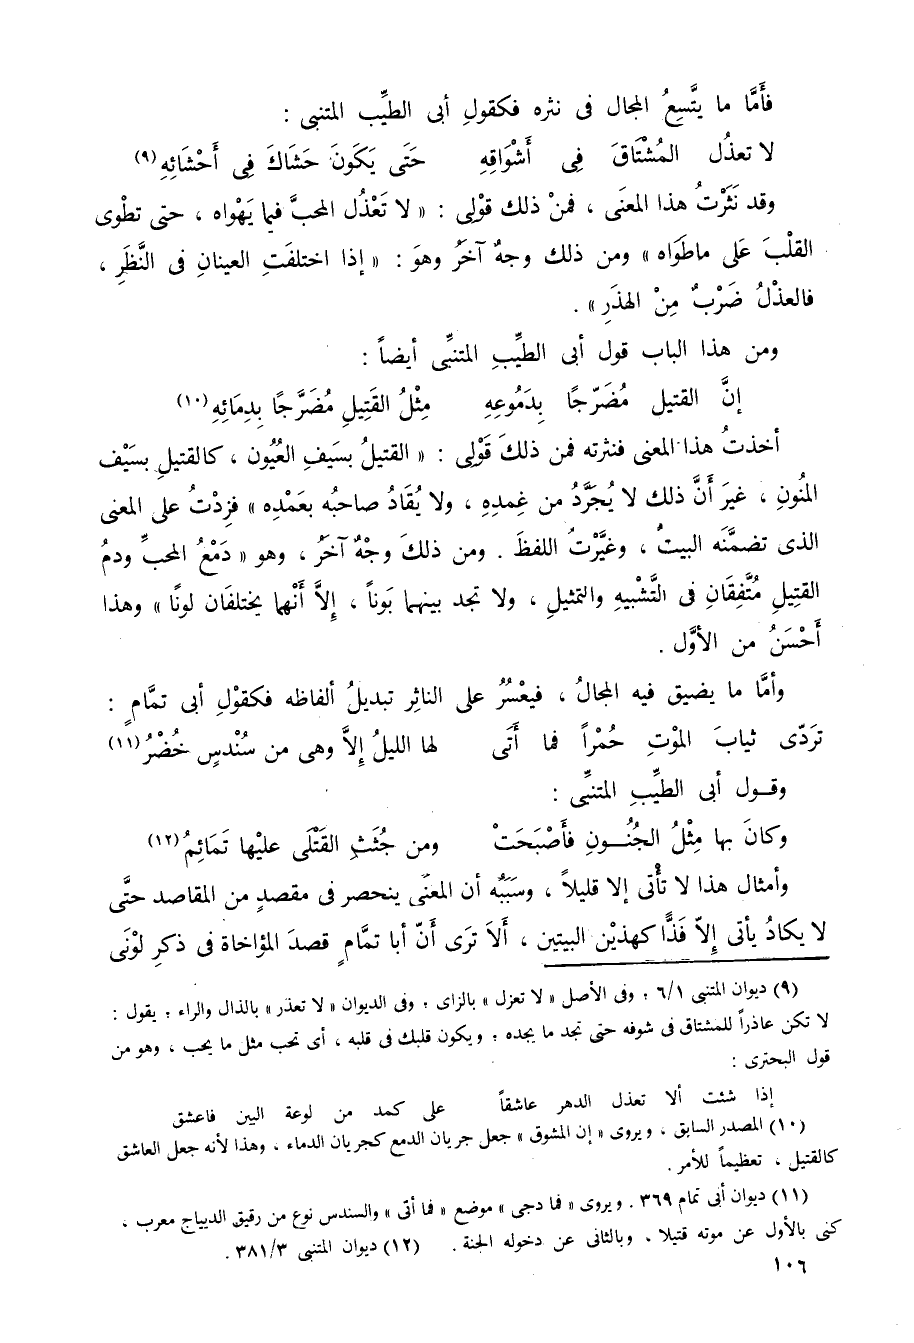 فأمَّا ما يتَّسِعُ المجال فى نثره فكقولِ أبى الطيِّب المتنبى :
لا تعذُل المُشْتَاقَ فِى أَشْوَاقِهِ حَتَى يَكَونَ حَشَاكَ فِى أَحْشَائِهِ (٩)
وقد نَثَرْتُ هذا المعنَى ، فمنْ ذلك قوْلِى : « لا تَعْذُل المحبَّ فيما يَهْواه ، حتى تطْوى
القلْبَ عَلى ماطَواه » ومن ذلك وجهٌ آخَرُ وهوَ : « إذا اختلفَتِ العينانِ فى النَّظَرِ ،
فالعذْلُ ضَرْبٌ مِنْ الهذَرِ » .
ومن هذا الباب قول أبى الطيِّبِ المتنبِّى أيضاً :
إنَّ القتيل مُضَرّجًا بِدَمُوعِهِ مِثْلُ القَتِيلِ مُضَرَّجًا بِدِمَائِهِ (١٠)
أخذتُ هذا المعنى فنثرته فمن ذلكَ قَوْلِى : « القتيلُ بسَيفِ العُيُون ، كالقتيلِ بسَيْف
المنُونِ ، غيرَ أَنَّ ذلك لا يُجَرَّدُ من غِمدِهِ ، ولا يُقَادُ صاحبُه بعَمْدِه » فزِدْتُ على المعنى
الذى تضمَّنَه البيتُ ، وغيَّرْتُ اللفظَ . ومن ذلكَ وجْهٌ آخَرُ ، وهو « دَمْعُ المحبِّ ودمُ
القتِيلِ مُتَّفِقَانِ فى التَّشْبيهِ والتمثيلِ ، ولا تجد بينهما بَوناً ، إلاَّ أنْهما يختلفَان لونًا » وهذا
أَحْسَنُ من الأوَّل .
وأمَّا ما يضيق فيه المجالُ ، فيعْسُرُ على الناثِر تبديلُ ألفاظه فكقوْلِ أبى تمَّامٍ :
تَردّى ثيابَ الموْتِ حُمْراً فما أَتَى لها الليلُ إلاَّ وهى من سُنْدسٍ خُضْرُ (١١)
وقـول أبى الطيِّبِ المتنبِّى :
وكانَ بها مِثْلُ الجُنُـونِ فأَصْبَحَتْ ومن جُثَثِ القَتْلَى عليْها تَمَائِمُ (١٢)
وأمثال هذا لا تأْتى إلا قليلاً ، وسَبَبُه أن المعنَى ينحصر فى مقصدٍ من المقاصد حتَّى
لا يكادُ يأتى إلاّ فَذًّا كهذيْن البيتين ، ألاَ ترَى أنّ أبا تمَّامٍ قصدَ المؤاخاة فى ذكرِ لوْنَى
(٩) ديوان المتنبى ٦/١ ، وفى الأصل « لا تعزل » بالزاى ، وفى الديوان « لا تعذر » بالذال والراء ، يقول :
لا تكن عاذراً للمشتاق فى شوقه حتى تجد ما يجده ، ويكون قلبك فى قلبه ، أى تحب مثل ما يحب ، وهو من
قول البحترى :
إذا شئت ألا تعذل الدهر عاشقاً على كمد من لوعة البين فاعشق
(١٠) المصدر السابق ، ويروى « إن المشوق » جعل جريان الدمع كجريان الدماء ، وهذا لأنه جعل العاشق
كالقتيل ، تعظيماً للأمر .
(١١) ديوان أبى تمام ٣٦٩ . ويروى « فما دجى » موضع « فما أتى » والسندس نوع من رقيق الديباج معرب ،
كنى بالأول عن موته قتيلا ، وبالثانى عن دخوله الجنة . (١٢) ديوان المتنبى ٣٨١/٣ .
١٠٦